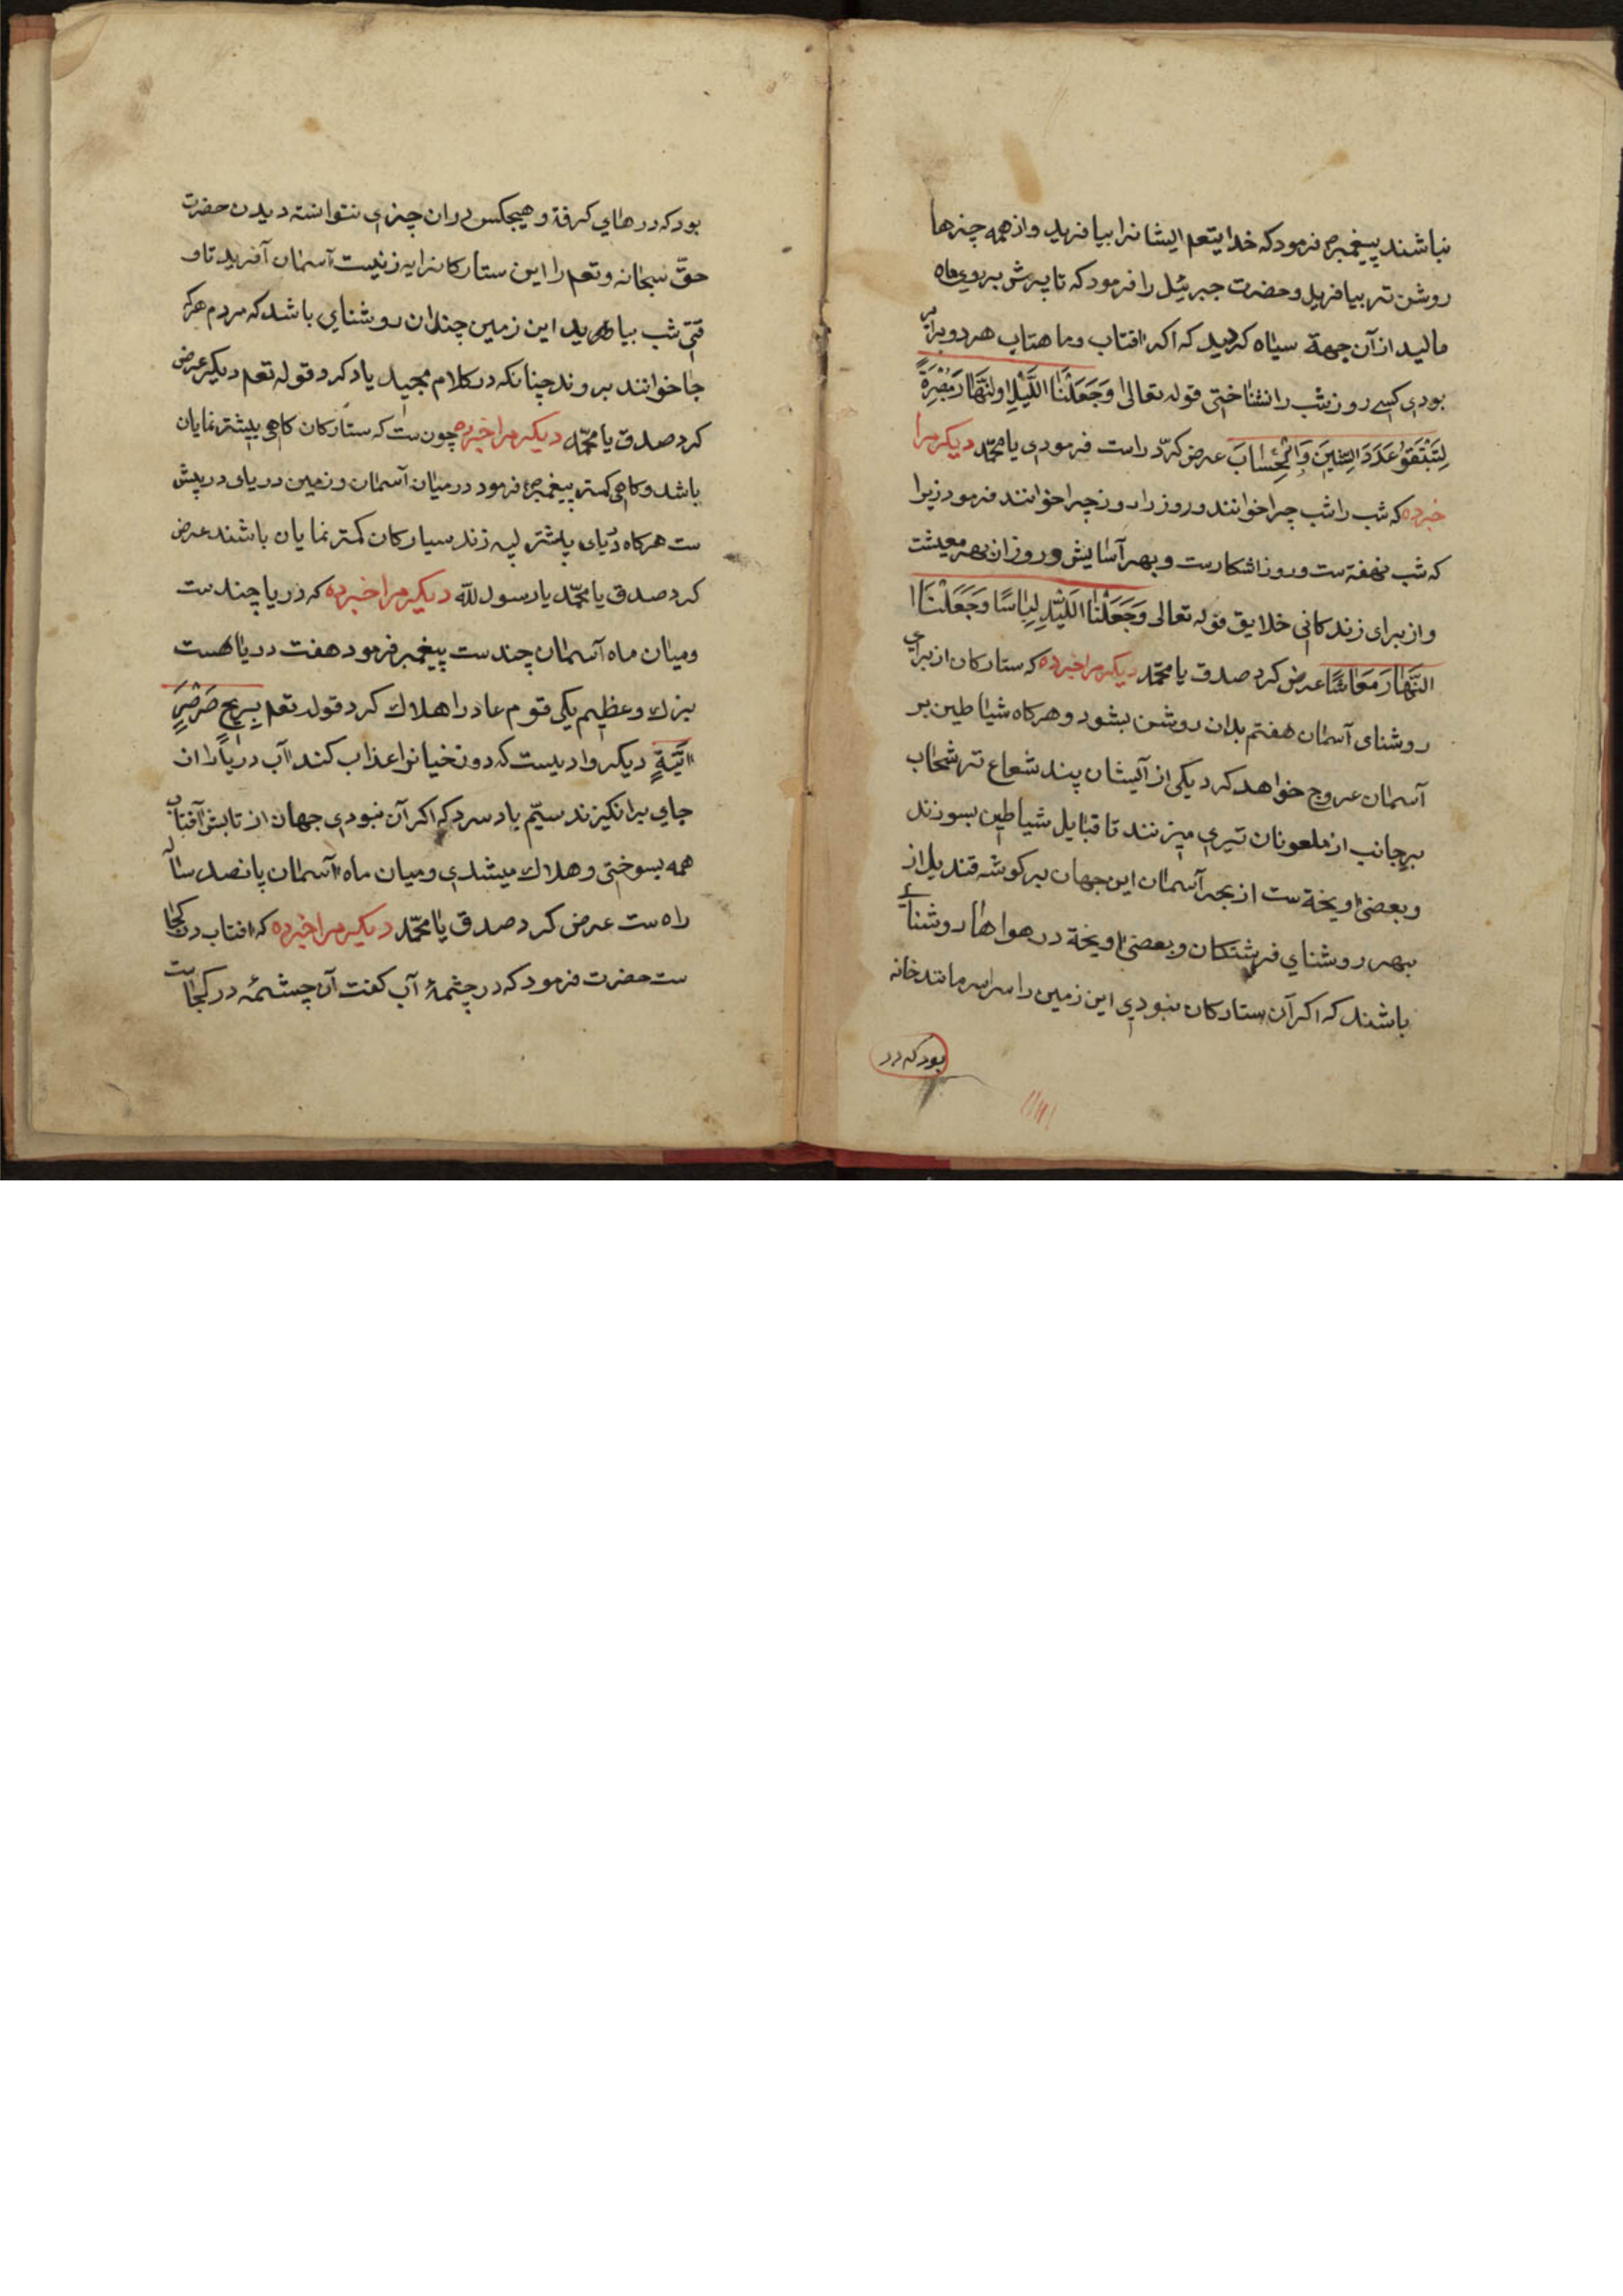 نباشند پیغمبر ص فرمود که خدایتعم ایشانرا بیافرید و از همه چیزها
روشن تر بیافرید و حضرت جبرئیل را فرمود که تا پرش بر روی ماه
مالید از آن جهة سیاه کردید که اکر افتاب و ماهتاب هر دو برابر
بودی کسے روز شب را نشناختی قوله تعالی وَجَعَلْنَا اللَّیْلِ وَلنَّهَارَ مُبْصِرَةً
لِتَبْتَغَوُ عَدَدَ السِّنِینَ وَالْحِسَابَ عرض کرد راست فرمودی یا محمّد دیکر مرا
خبرده که شب را شب چرا خوانند و روز را روز چرا خوانند فرمود زیرا
که شب نهفته ست و روز اشکارست و بهر آسایش و روز از بهر معیشت
و از برای زندکانی خلایق قوله تعالی وَجَعَلْنَا اللَیّلِ لِبَاسًا وَجَعَلْنَا ا
النَّهَارَ مَعَاشًا عرض کرد صدق یا محمّد دیکر مرا خبرده که ستارکان از برای
روشنای آسمان هفتم بدان روشن بشود و هرکاه شیاطین بر
آسمان عروج خواهد کرد یکی از آیشان پند شعاع تر شحاب
بر جانب از ملعونان تیری میزنند تا قبایل شیاطین بسوزند
و بعضی اویخة ست از بحر آسمان این جهان بر کوشه قندیل از
بهر روشنای فرشتکان و بعضی اویخة در هواها روشنائے
باشند که اکر آن ستارکان نبودی این زمین را سراسر مانند خانه
بود که در
بود که درهای کرفة و هیجکس دران چیزی نتوانسته دیدن حضرت
حقّ سبحانه و تعم را این ستارکانرا به زینت آسمان آفرید تا و
قتی شب بیاهرید این زمین چندان روشنای باشد که مردم هرکه
جا خوانند بروند چنانکه در کلام مجید یاد کرد قوله تعم دیکر عرض
کرد صدق یا محمّد دیکر مرا خبرده چون ست که ستارکان کاهی بیشتر نمایان
باشد و کاهی کمتر پیغمبر ص فرمود در میان آسمان و زمین دریای در پیش
ست هرکاه دُیای بیشتر لپه زند سیارکان کمتر نمایان باشند عرض
کرد صدق یا محمّد یا رسول لله دیکر مرا خبرده که دریا چند ست
و میان ماه آسمان چند ست پیغمبر فرمود هفت دریا هست
بزرك و عظیم یکی قوم عاد را هلاك کرد قوله تعم بِرِیحٍ صَرْصَرٍ
اتَیَةٍ دیکر وادیست که دوزخیانرا عذاب کند آب دریا را از ان
جای برانکیزند سیّم باد سرد که اکر آن نبودی جهان از تابش آفتاب
همه بسوختی و هلاك میشدی و میان ماه آسمان پانصد ساله
راه ست عرض کرد صدق یا محمّد دیکر مرا خبرده که افتاب در کجا
ست حضرت فرمود که در چشمهٔ آب کفت آن چشمهٔ در کجاست